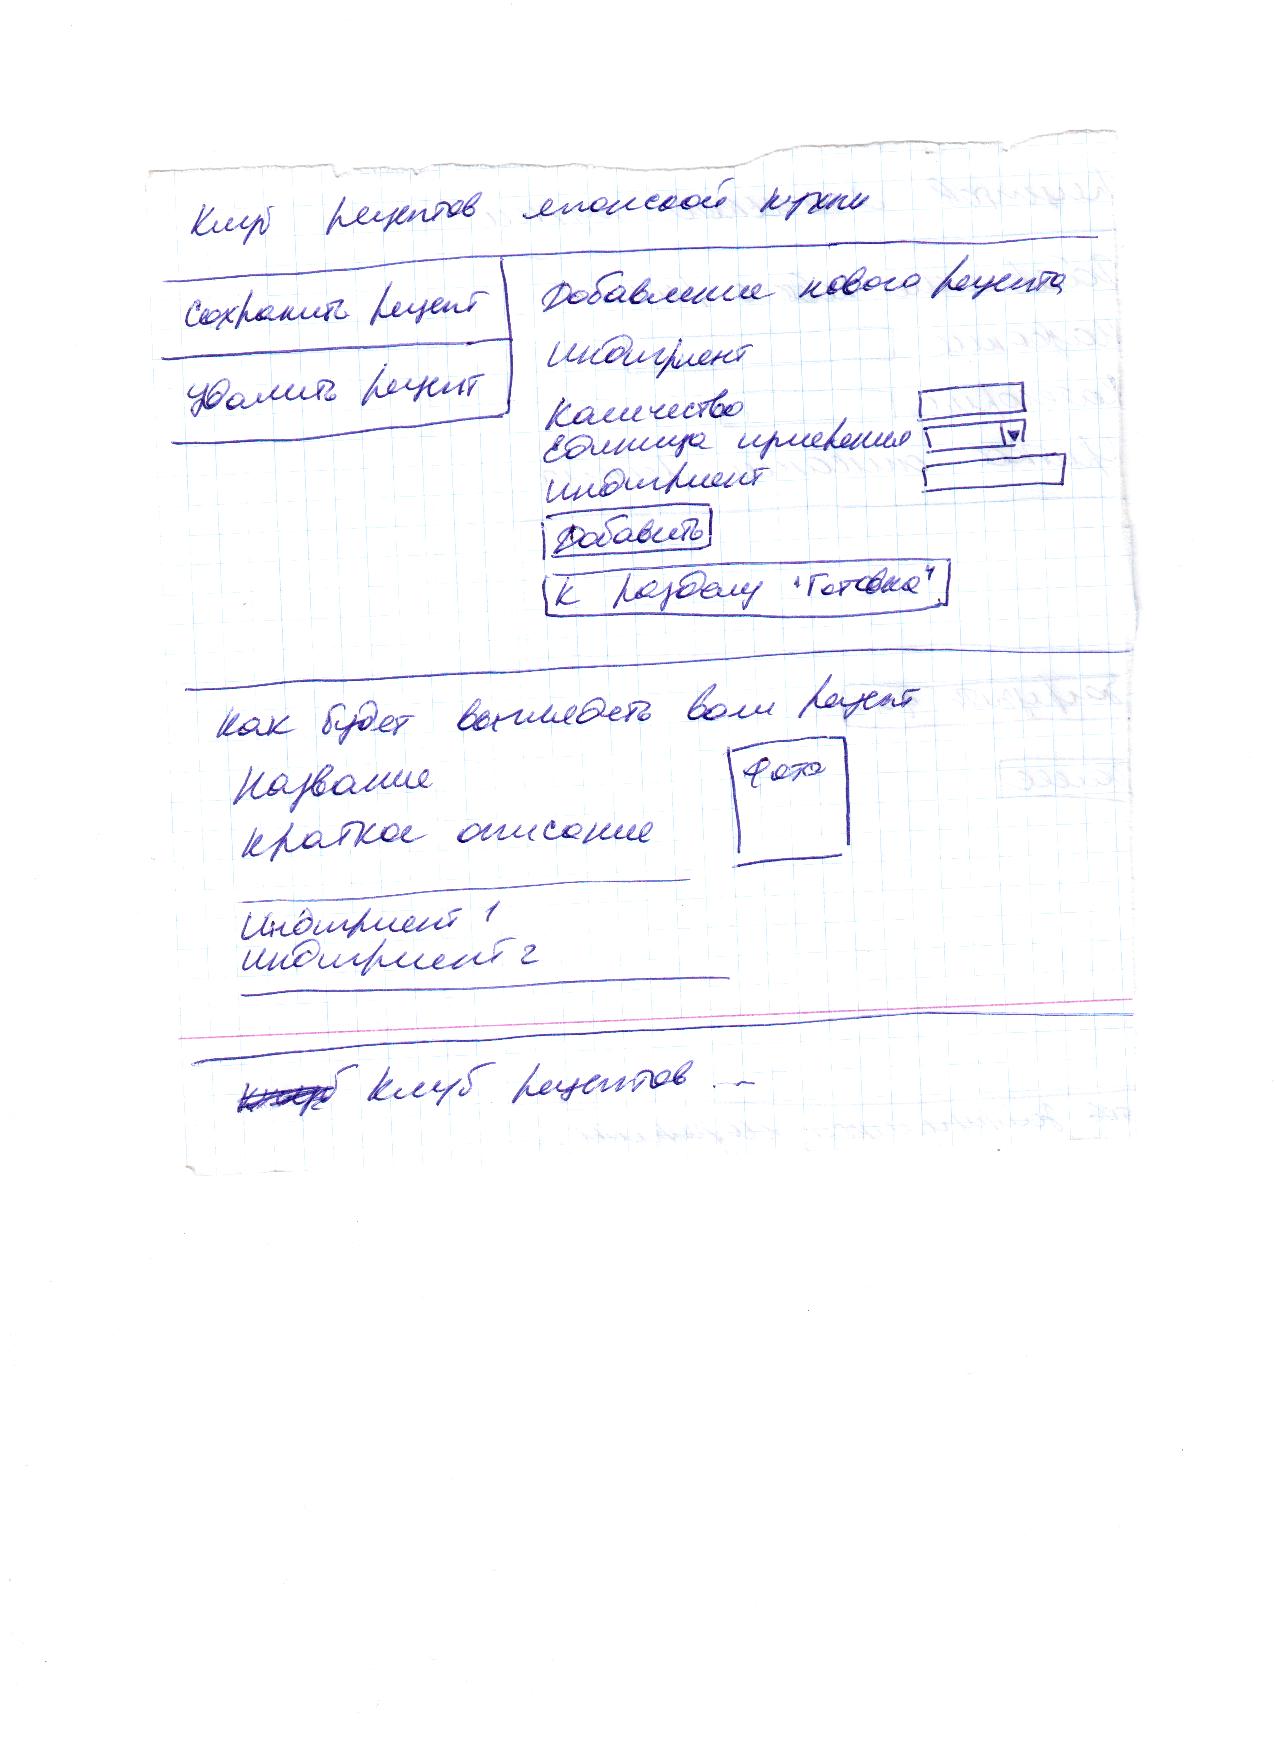 Клуб рецептов японской кухни
Сохранить рецепт
Удалить рецепт
Добавление нового рецепта
Индигриент
Количество
Единица измерения
Индигриент
Добавить
К разделу "Готовка"
Как будет выглядеть ваш рецепт
Название
Фото
Краткое описание
Индигриент 1
Индигриент 2
Клуб рецептов ...